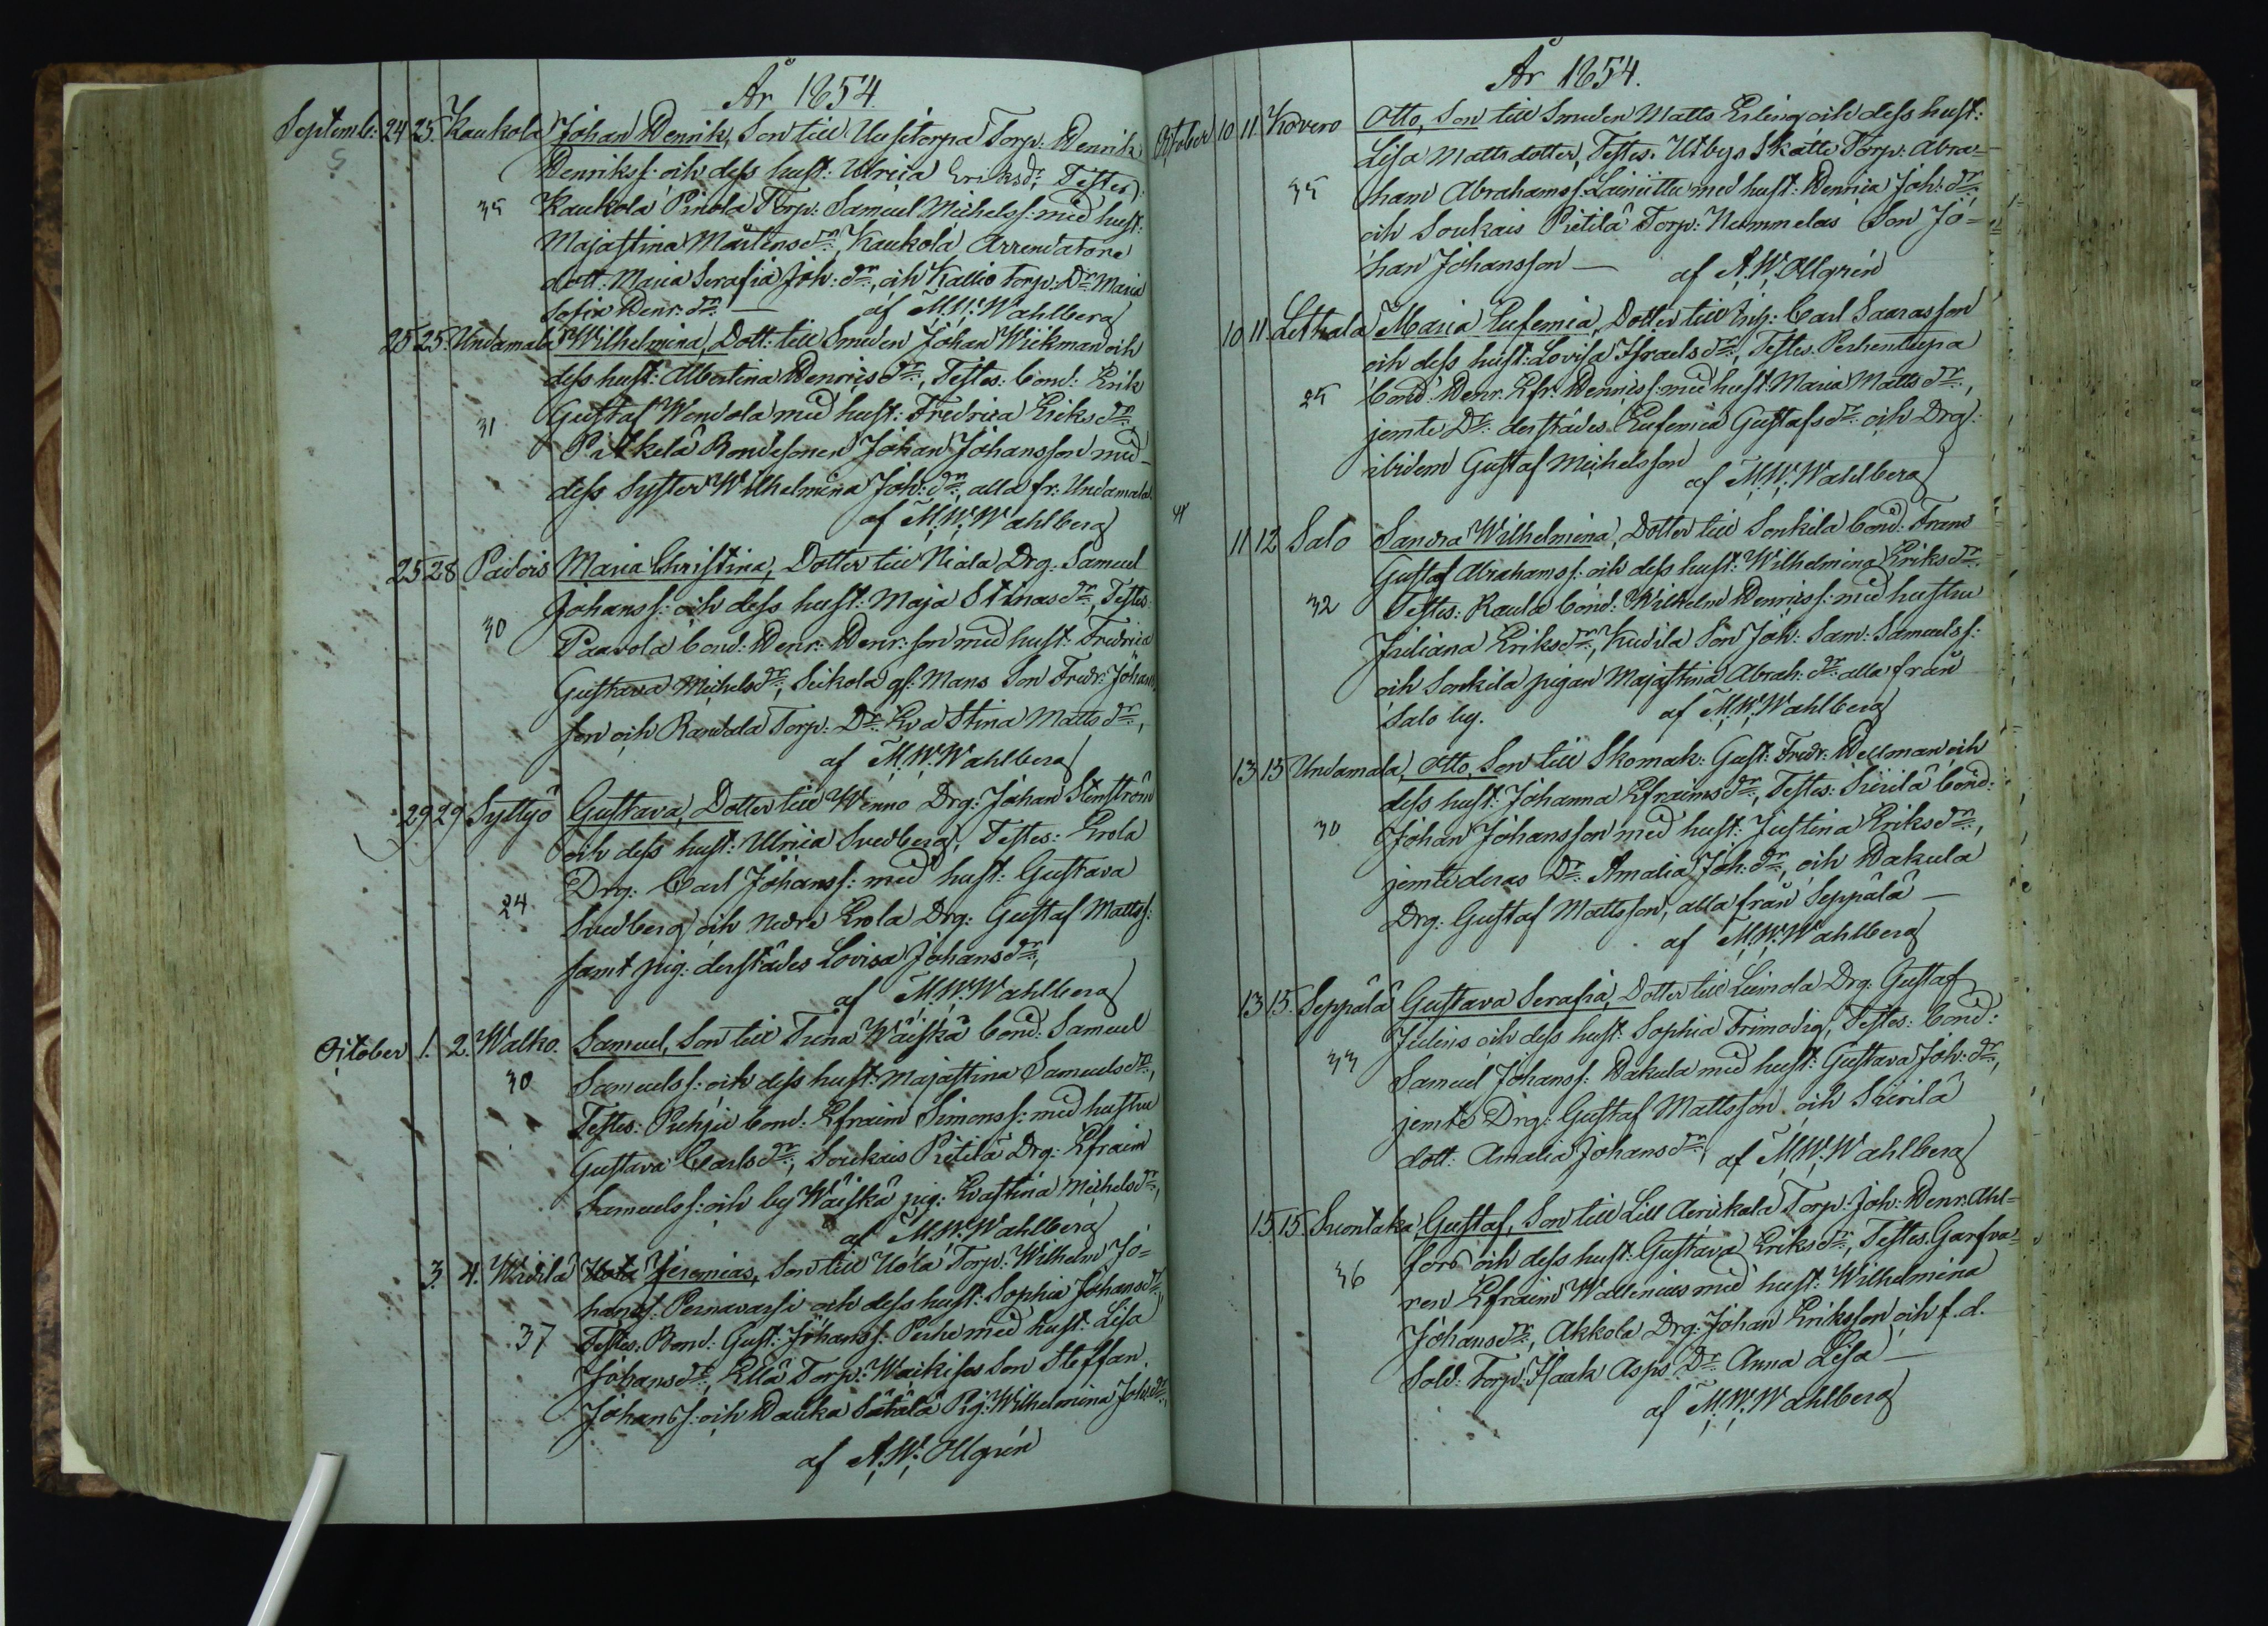 År 1854.
Septemb: 24 25. Kaukola Johan Henrik, Son till Uusitorpa Torp: Henrik
Henrikss: och dess hust: Ulrica Eriksdr, Testes:
35 Kaukola Pinola Torp: Samuel Michelss: med hust:
Majastina Mårtensdr: Kaukola Arrendatore
dott: Maria Serafia Joh: dr:, och Kallio torp: Dr: Maria
Sofia Henr: dr: — af M.W. Wahlberg
25 25. Undamala Wilhelmina, Dott: till Smeden Johan Wickman och
dess hust: Albertina Henricsdr:, Testes: Bond: Erik
31 Gustaf Wendola med hust: Fredrica Eriksdr:
Pitkelä Bondesonen Johan Johansson med
dess Syster Wilhelmina Joh: dr:, alla fr: Undamala.
af M.W. Wahlberg
25 28 Padois Maria Christina, Dotter till Niala Drg: Samuel
Johanss: och dess hust: Maja Stinas dr:, Testes:
30 Paavola bond: Henr: Henr: son med hust: Fredrica
Gustava Michelsdr:, Seikola gf: Mans Son Fredr: Johans
son och Randala Torp: Dr: Eva Stina Mattsdr:,
af M.W. Wahlberg
29 29 Syttyö Gustava, Dotter till Wenno Drg: Johan Stenström
och dess hust: Ulrica Svedberg, Testes: Erola
Drg: Carl Johanss: med hust: Gustava
24 Svedberg och nedre Erola Drg: Gustaf Mattss:
samt pig: derstädes Lovisa Johansdr:,
af M.W. Wahlberg
October 1. 2. Walko. Samuel, Son till Tuna Wäiskä bond: Samuel
30 Samuelss: och dess hust: Majastina Samuelsdr:,
Testes: Puhjo bond: Efraim Simonss: med hustru
Gustava Carlsdr:, Soukais Pietilä Drg: Efraim
Samuelss: och by Wäiskä pig: Evastina Michelsdr:,
af M.W. Wahlberg
3. 4. Wirilä Jeremias, Son till Uola Torp: Wilhelm Jo=
hanss: Pernavarsi och dess hust: Sophia Johansdr:
37 Testes. Bond: Gust: Johanss: Perhe med hust: Lisa
Johansdr: Ellä Torp: Waikises Son Steffan
Johanss: och Hauka Sätälä Pig: Wilhelmina Joh: dr:,
af A.W. Ollgrén
År 1854.
October 10 11 Kovero Otto, Son till Smeden Matts Erling och dess hust:
Lisa Mattsdotter, Testes. Utbys Skatte Torp: Abra=
35 ham Abrahamss: Lainiittu med hust: Henrica Joh: dr:
och Soukais Pietilä Torp: Nummelas Son Jo=
han Johansson — af A.W. Ollgrén
10 11. Lethala Maria Eufemia, Dotter till Inh: Carl Saarasson
och dess hust: Lovisa Israelsdr:, Testes. Perhentupa
25 bond: Henr. Efr: Henricss: med hust: Maria Mattsdr:,
jemte Dr: derstädes Eufemia Gustafsdr: och Drg:
ibidem Gustaf Michelsson
af M.W. Wahlberg
11 12 Salo Sandra Wilhelmina, Dotter till Sonkila bond: Frans
Gustaf Abrahamss: och dess hust: Wilhelmina Eriksdr:
32 Testes: Raula bond: Wilhelm Henricss: med hustru
Juliana Eriksdr:, Kudila Son Joh: Sam: Samuelss:
och Sonkila pigan Majastina Abrah: dr: alla från
Salo by. af M.W. Wahlberg
13 15 Undamala, Otto, Son till Skomak: Gust: Fredr: Hellman och
dess hust: Johanna Efraimsdr:, Testes: Siirilä bond:
30 Johan Johansson med hust: Justina Eriksdr:,
jemte deras Dr: Amalia Joh: dr:, och Hakula
Drg: Gustaf Mattsson, alla från Seppälä —
af M.W. Wahlberg
13 15. Seppälä Gustava Serafia, Dotter till Liinola Drg: Gustaf
Julius och dess hust: Sophia Frimodig, Testes: bond:
33 Samuel Johanss: Hakula med hust: Gustava Joh: dr:,
jemte Drg: Gustaf Mattsson och Siirilä
dott: Amalia Johansdr:, af M.W. Wahlberg
15. 15. Suontaka Gustaf, Son till Lill Aerikala Torp: Joh: Henr: Ahl=
fors och dess hust: Gustava Eriksdr:, Testes. Garfva=
36 ren Efraim Wallenius med hust: Wilhelmina
Johansdr:, Akkola Drg: Johan Eriksson och f.d.
Sold: Torp: Isaak Asps Dr: Anna Lisa —
af M.W. Wahlberg